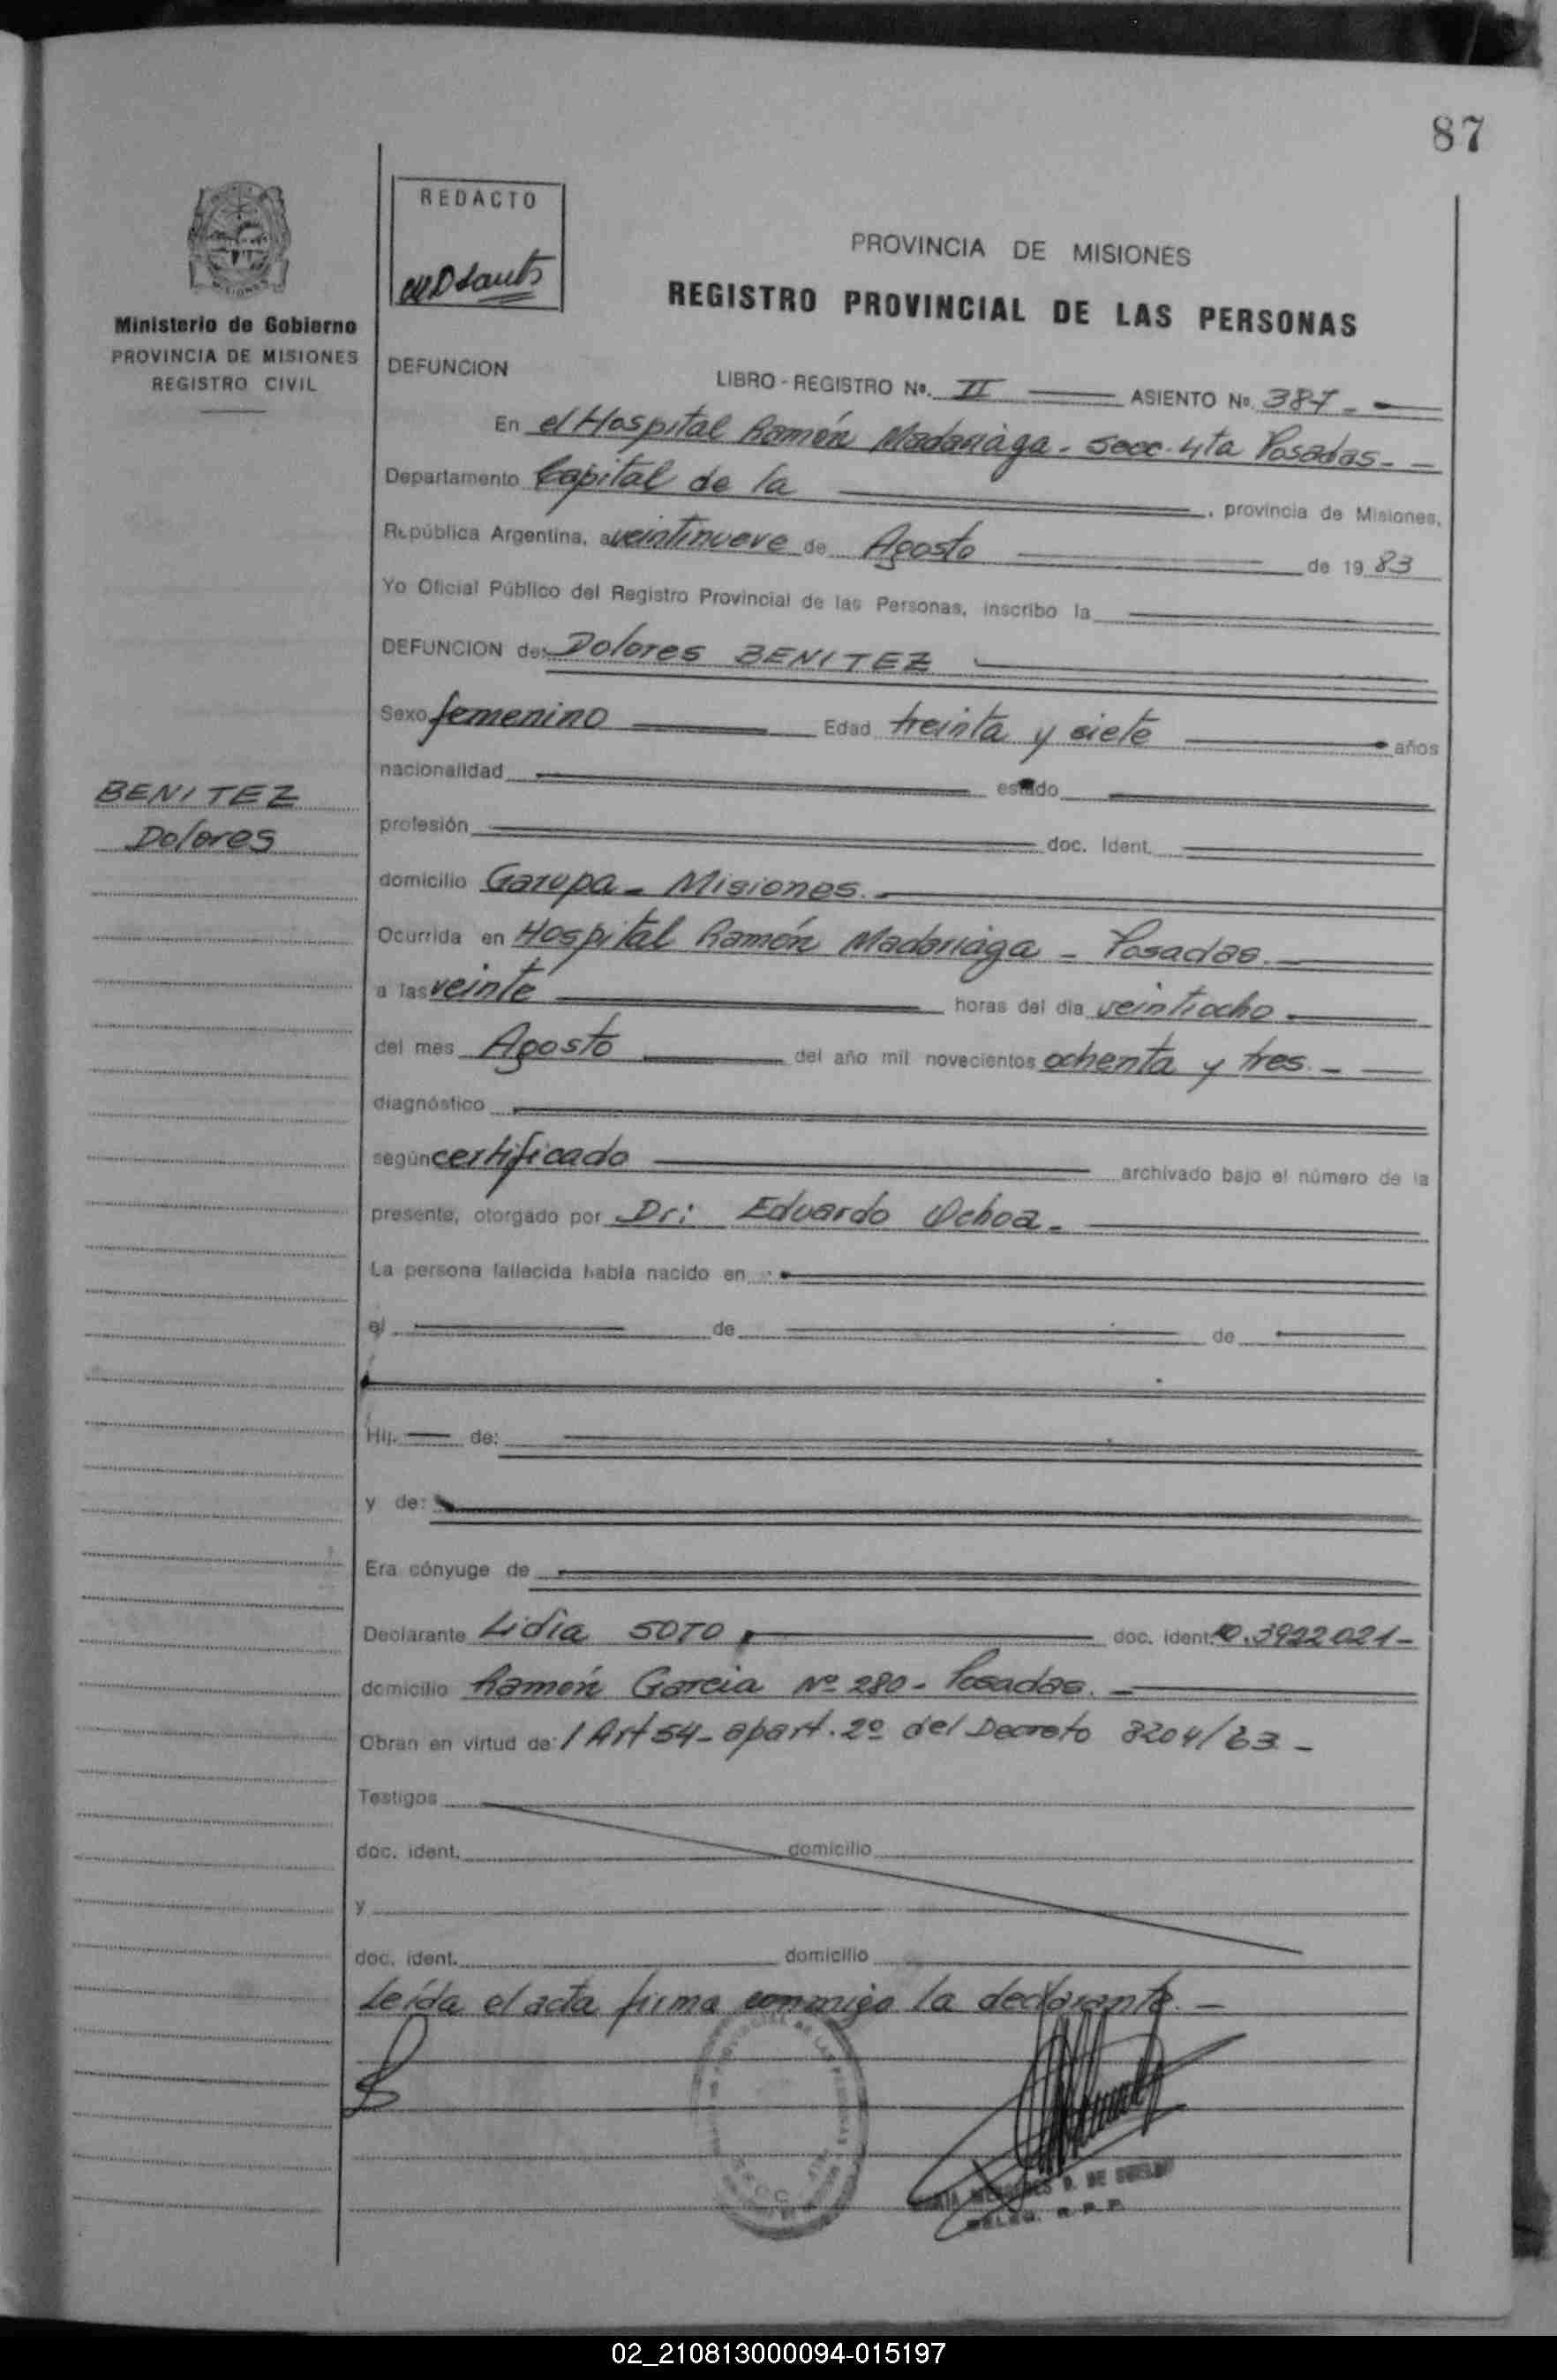 87
REDACTO
PROVINCIA DE MISIONES
REGISTRO PROVINCIAL DE LAS PERSONAS
Ministerio de Gobierno
PROVINCIA DE MISIONES
REGISTRO CIVIL
DEFUNCION
LIBRO - REGISTRO No. II ASIENTO No. 387
En el Hospital Ramón Madariaga - Secc. 4ta Posadas
Departamento Capital de la , provincia de Misiones,
República Argentina, a veintinueve de Agosto de 1983
Yo Oficial Público del Registro Provincial de las Personas, inscribo la
DEFUNCION de: Dolores BENITEZ
Sexo femenino Edad treinta y siete años
nacionalidad estado
BENITEZ
Dolores
profesión doc. Ident.
domicilio Garupa - Misiones.
Ocurrida en Hospital Ramón Madariaga - Posadas.
a las veinte horas del día veintiocho
del mes Agosto del año mil novecientos ochenta y tres.
diagnóstico
según certificado archivado bajo el número de la
presente, otorgado por Dr: Eduardo Ochoa
La persona fallecida había nacido en
el de de
Hij. de:
y de:
Era cónyuge de
Declarante Lidia SOTO doc. ident. 3922021
domicilio Ramón Garcia Nº 280 - Posadas.
Obran en virtud de: l Art 54 - apart. 2º del Decreto 8204/63
Testigos
doc. ident. domicilio
y
doc. ident. domicilio
Leída el acta firma conmigo la declarante.
02_210813000094-015197